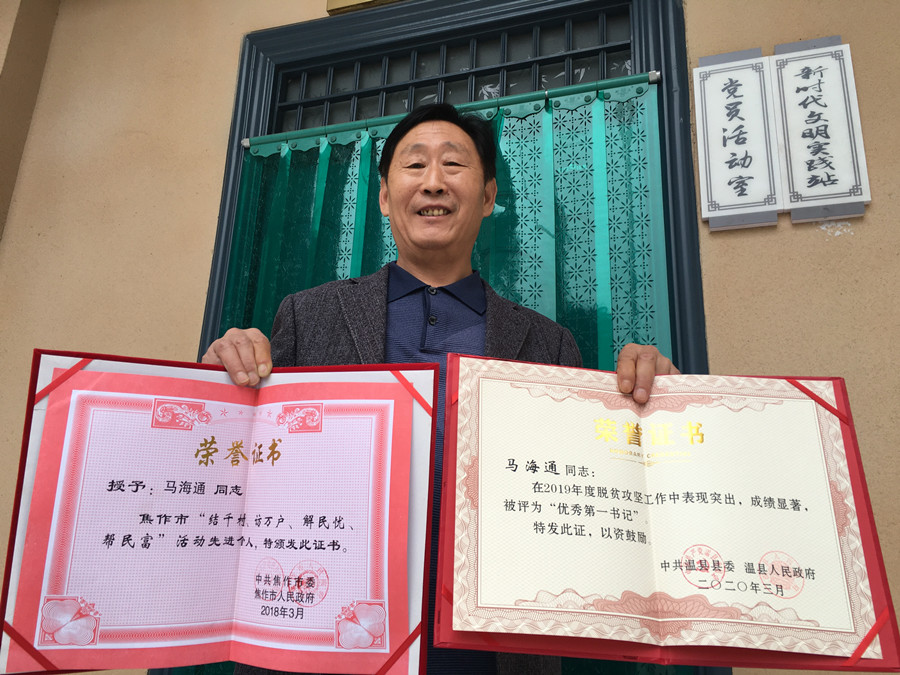 党员活动室
新时代文明实践站
荣誉证书
授予：马海通 同志
焦作市“结千村、访万户、解民忧、
帮民富”活动先进个人，特颁发此证书。
中共焦作市委
焦作市人民政府
2018年3月
荣誉证书
马海通 同志：
在2019年度脱贫攻坚工作中表现突出，成绩显著，
被评为“优秀第一书记”，
特发此证，以资鼓励。
中共温县县委 温县人民政府
二〇二〇年三月